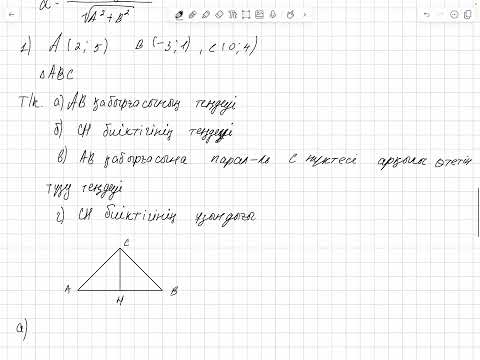 d = √A² + B²
1) A (2; 5) B (-3; 1), C (0; 4)
△ABC
Т/к. а) AB қабырғасының теңдеуі
б) CH биіктігінің теңдеуі
в) AB қабырғасына парал-ль C нүктесі арқылы өтетін
түзу теңдеуі
г) CH биіктігінің ұзындығы
C
A B
H
а)